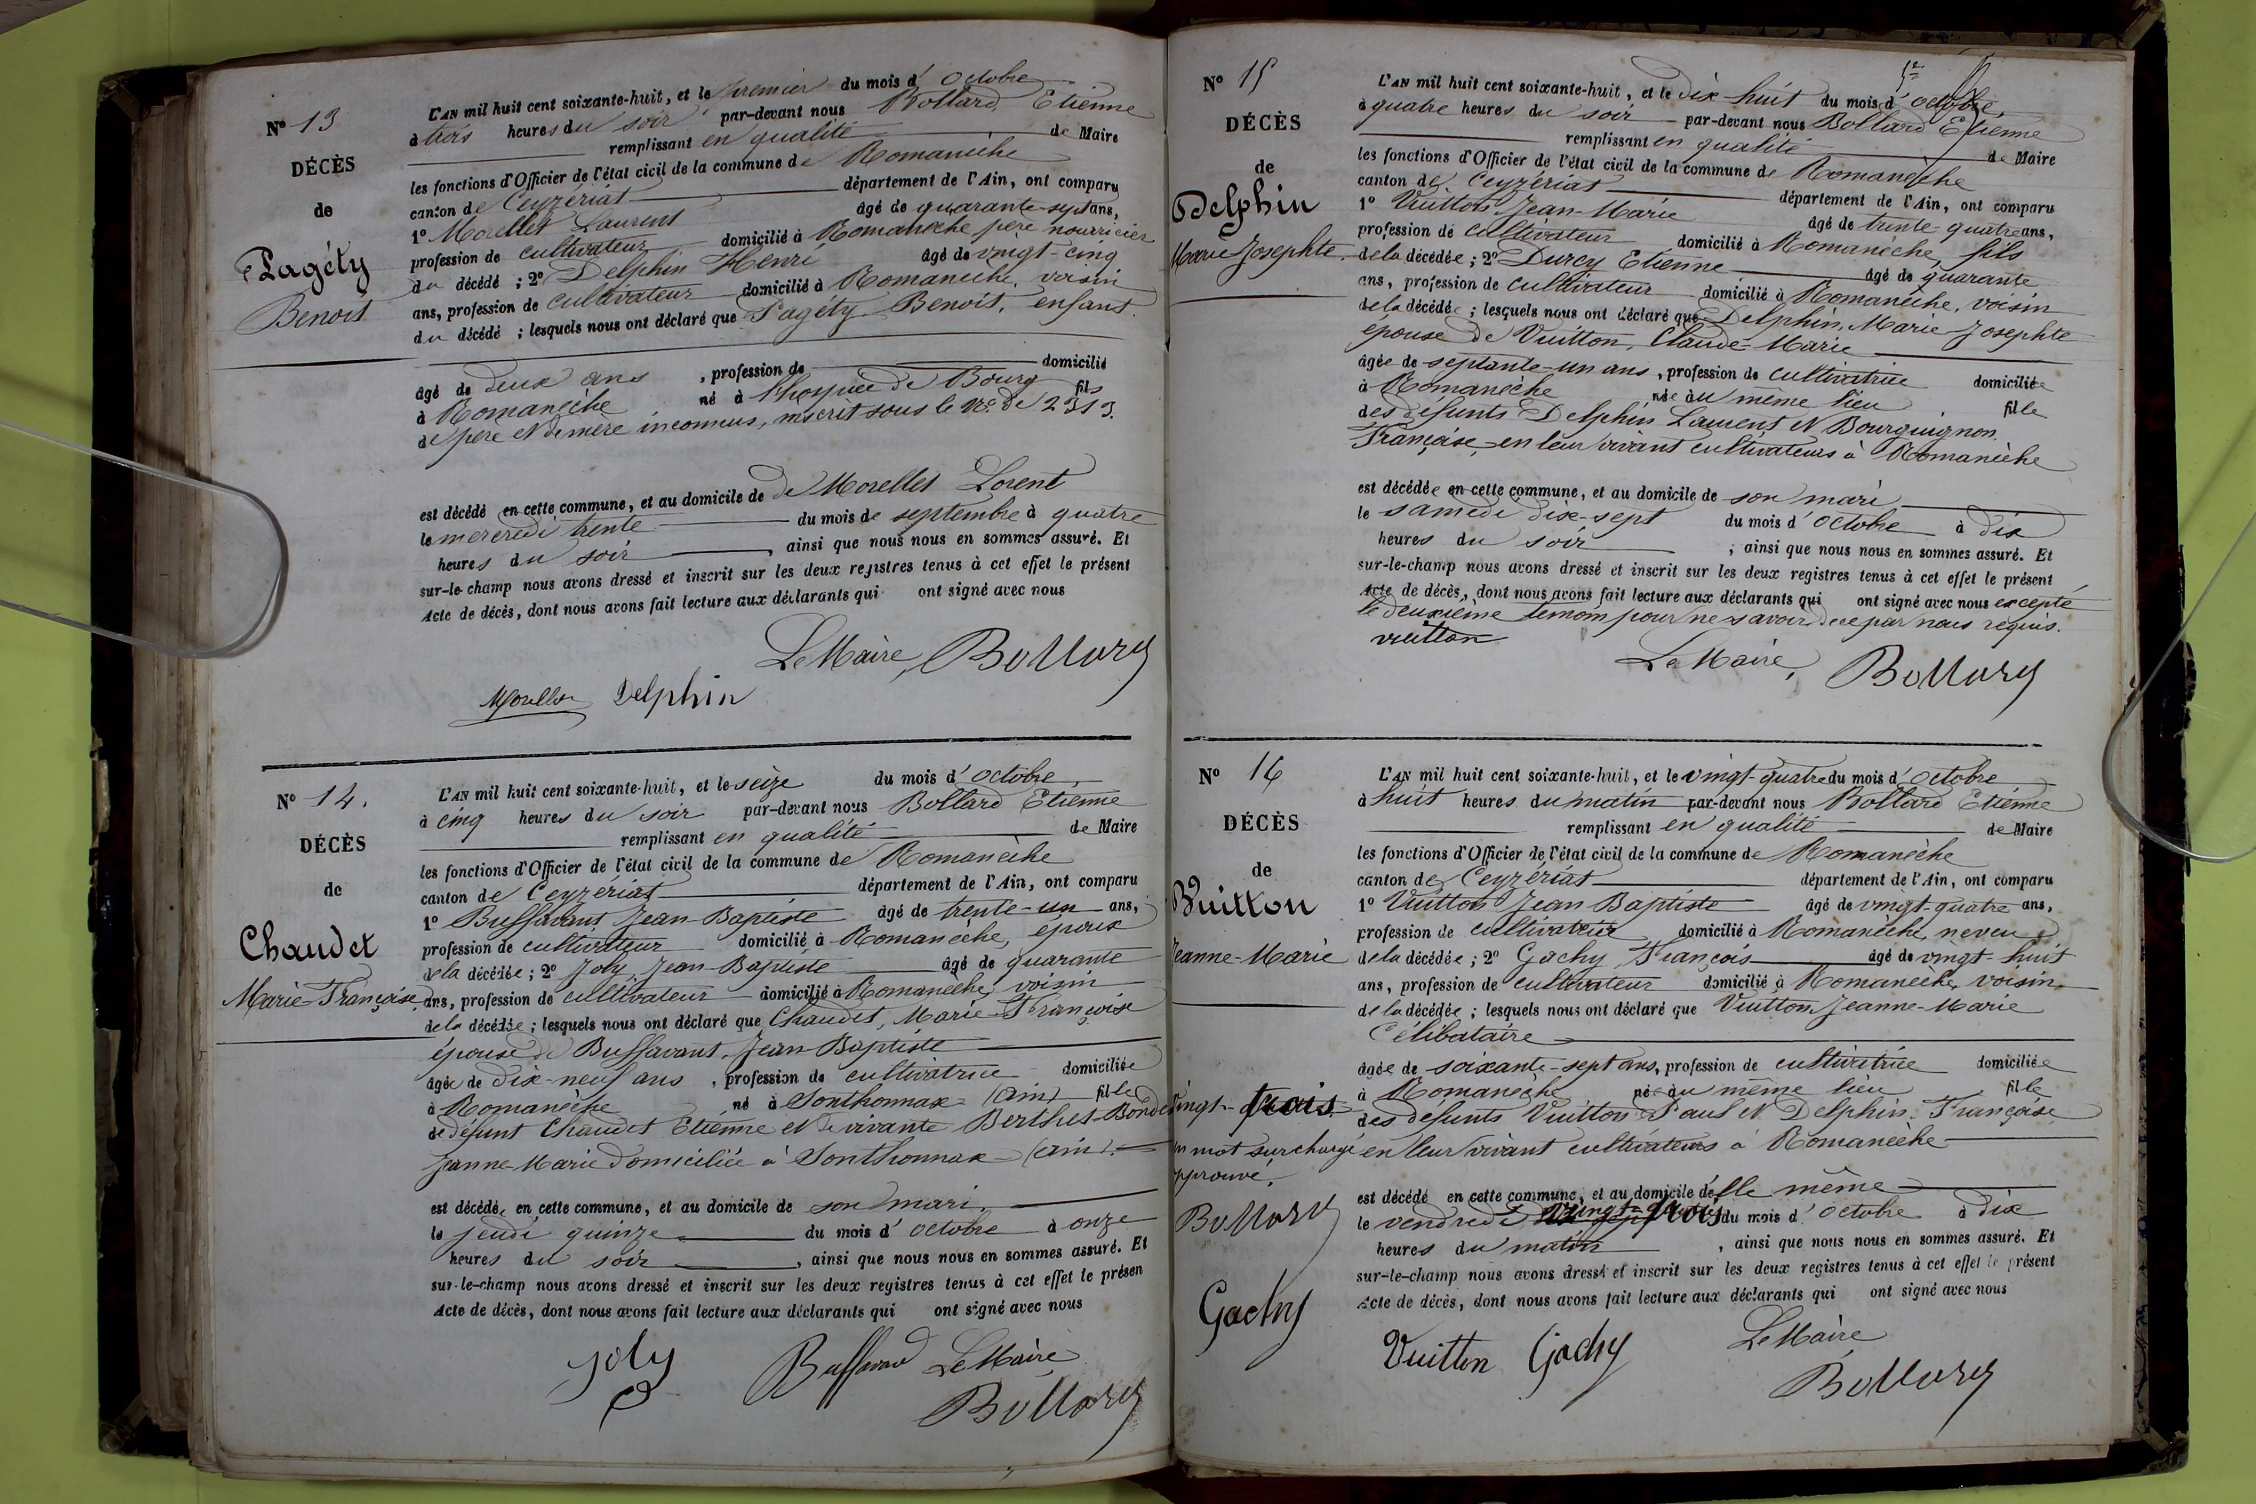 N° 13
DÉCÈS
de
Pagéty
Benoit
L'AN mil huit cent soixante-huit, et le premier du mois d'octobre
à trois heures du soir par-devant nous Bollard Etienne
remplissant en qualité de Maire
les fonctions d'Officier de l'état civil de la commune de Romanèche
canton de Ceyzériat département de l'Ain, ont comparu
1° Morellet Laurent âgé de quarante-sept ans,
profession de cultivateur domicilié à Romanèche père nourricier
du décédé ; 2° Delphin Henri âgé de vingt-cinq
ans, profession de cultivateur domicilié à Romanèche, voisin
du décédé ; lesquels nous ont déclaré que Pagéty Benoit, enfant
âgé de deux ans , profession de domicilié
à Romanèche né à l'hospice de Bourg fils
de père et de mère inconnus, inscrit sous le N° de 2313.
est décédé en cette commune, et au domicile de de Morellet Lorent
le mercredi trente du mois de septembre à quatre
heures du soir , ainsi que nous nous en sommes assuré. Et
sur-le-champ nous avons dressé et inscrit sur les deux registres tenus à cet effet le présent
Acte de décès, dont nous avons fait lecture aux déclarants qui ont signé avec nous
Le Maire, Bollard
Morellet Delphin
N° 14.
DÉCÈS
de
Chaudet
Marie-Françoise
L'AN mil huit cent soixante-huit, et le seize du mois d'octobre,
à cinq heures du soir par-devant nous Bollard Etienne
remplissant en qualité de Maire
les fonctions d'Officier de l'état civil de la commune de Romanèche
canton de Ceyzériat département de l'Ain, ont comparu
1° Buffavant Jean-Baptiste âgé de trente-un ans,
profession de cultivateur domicilié à Romanèche, époux
de la décédée ; 2° Joly, Jean-Baptiste âgé de quarante
ans, profession de cultivateur domicilié à Romanèche, voisin
de la décédée ; lesquels nous ont déclaré que Chaudet, Marie-Françoise
épouse de Buffavant, Jean-Baptiste
âgée de dix-neuf ans , profession de cultivatrice domiciliée
à Romanèche né à Sonthonnax (ain) fille
de défunt Chaudet Etienne et de vivante Berthet-Bondet
Jeanne-Marie domiciliée à Sonthonnax (ain).
est décédée en cette commune, et au domicile de son mari
le jeudi quinze du mois d'octobre à onze
heures du soir , ainsi que nous nous en sommes assuré. Et
sur-le-champ nous avons dressé et inscrit sur les deux registres tenus à cet effet le présen
Acte de décès, dont nous avons fait lecture aux déclarants qui ont signé avec nous
Joly Buffavand Le Maire
Bollard
N° 15
DÉCÈS
de
Delphin
Marie Josephte.
L'AN mil huit cent soixante-huit, et le dix-huit du mois d'octobre,
à quatre heures du soir par-devant nous Bollard Etienne
remplissant en qualité de Maire
les fonctions d'Officier de l'état civil de la commune de Romanèche
canton de Ceyzériat département de l'Ain, ont comparu
1° Vuitton Jean-Marie âgé de trente-quatre ans,
profession de cultivateur domicilié à Romanèche, fils
de la décédée ; 2° Durey Etienne âgé de quarante
ans, profession de cultivateur domicilié à Romanèche, voisin
de la décédée ; lesquels nous ont déclaré que Delphin, Marie-Josephte
épouse de Vuitton, Claude-Marie
âgée de septante-un ans , profession de cultivatrice domiciliée
à Romanèche née au même lieu fille
des défunts Delphin Laurent et Bourguignon
Françoise, en leur vivant cultivateurs à Romanèche
est décédée en cette commune, et au domicile de son mari
le samedi dix-sept du mois d'octobre à dix
heures du soir ; ainsi que nous nous en sommes assuré. Et
sur-le-champ nous avons dressé et inscrit sur les deux registres tenus à cet effet le présent
Acte de décès, dont nous avons fait lecture aux déclarants qui ont signé avec nous excepté
le deuxième témoin pour ne savoir de ce par nous requis.
vuitton
Le Maire, Bollard
N° 16
DÉCÈS
de
Vuitton
Jeanne-Marie
L'AN mil huit cent soixante-huit, et le vingt-quatre du mois d'octobre
à huit heures du matin par-devant nous Bollard Etienne
remplissant en qualité de Maire
les fonctions d'Officier de l'état civil de la commune de Romanèche
canton de Ceyzériat département de l'Ain, ont comparu
1° Vuitton Jean Baptiste âgé de vingt-quatre ans,
profession de cultivateur domicilié à Romanèche, neveu
de la décédée ; 2° Gachy François âgé de vingt-huit
ans, profession de cultivateur domicilié à Romanèche, voisin
de la décédée ; lesquels nous ont déclaré que Vuitton Jeanne-Marie
Célibataire
âgée de soixante-sept ans, profession de cultivatrice domiciliée
à Romanèche née au même lieu fille
des défunts Vuitton Paul et Delphin Françoise
en leur vivant cultivateurs à Romanèche
est décédé en cette commune, et au domicile d'elle même
le vendredi vingt-trois du mois d'octobre à dix
heures du matin , ainsi que nous nous en sommes assuré. Et
sur-le-champ nous avons dressé et inscrit sur les deux registres tenus à cet effet le présent
Acte de décès, dont nous avons fait lecture aux déclarants qui ont signé avec nous
vingt-trois.
un mot surchargé
approuvé.
Bollard
Gachy
Vuitton Gachy Le Maire
Bollard